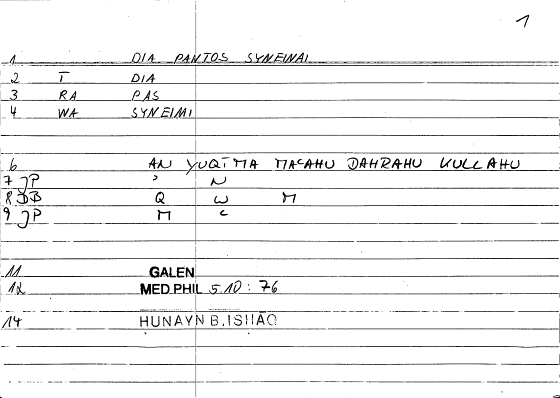 1
1 DIA PANTOS SYNEINAI
2 T DIA
3 RA PAS
4 WA SYNEIMI
6 AN YUQIMA MACAHU DAHRAHU KULLAHU
7 JP ' N
8 DB Q W M
9 JP M C
11 GALEN
12 MED.PHIL 5.10 : 76
14 HUNAYN B.ISHAQ